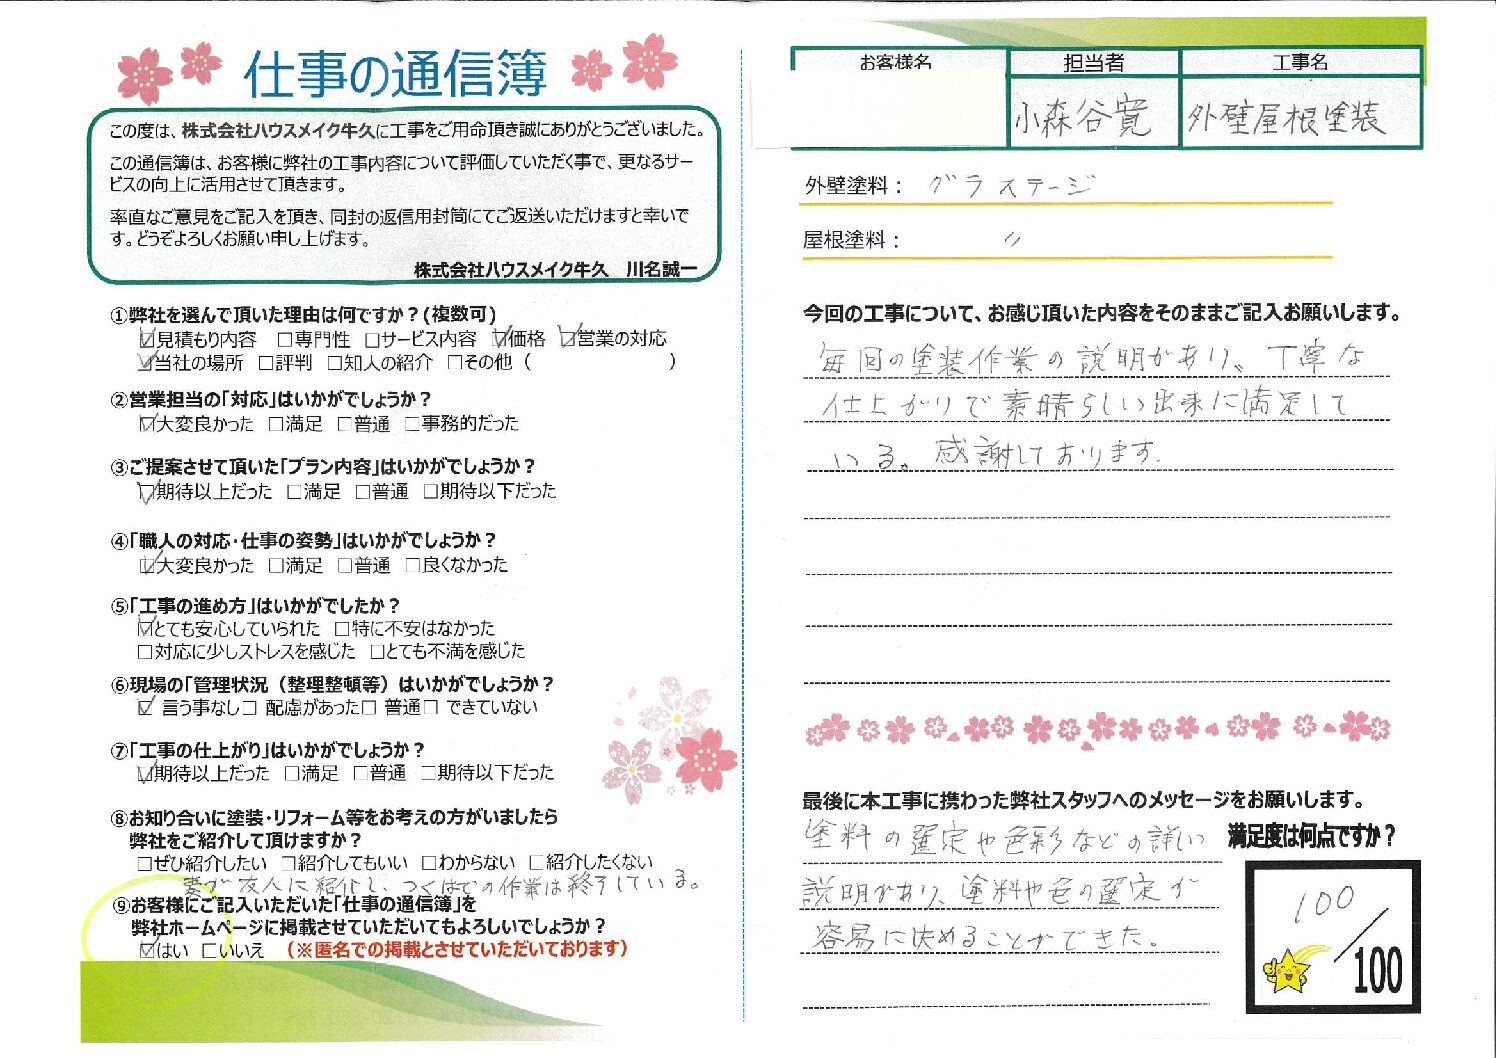 仕事の通信簿
この度は、株式会社ハウスメイク牛久に工事をご用命頂き誠にありがとうございました。
この通信簿は、お客様に弊社の工事内容について評価していただく事で、更なるサー
ビスの向上に活用させて頂きます。
率直なご意見をご記入を頂き、同封の返信用封筒にてご返送いただけますと幸いで
す。どうぞよろしくお願い申し上げます。
株式会社ハウスメイク牛久 川名誠一
①弊社を選んで頂いた理由は何ですか？(複数可)
☑見積もり内容 □専門性 □サービス内容 ☑価格 ☑営業の対応
☑当社の場所 □評判 □知人の紹介 □その他（ ）
②営業担当の「対応」はいかがでしょうか？
☑大変良かった □満足 □普通 □事務的だった
③ご提案させて頂いた「プラン内容」はいかがでしょうか？
☑期待以上だった □満足 □普通 □期待以下だった
④「職人の対応・仕事の姿勢」はいかがでしょうか？
☑大変良かった □満足 □普通 □良くなかった
⑤「工事の進め方」はいかがでしたか？
☑とても安心していられた □特に不安はなかった
□対応に少しストレスを感じた □とても不満を感じた
⑥現場の「管理状況（整理整頓等）はいかがでしょうか？
☑ 言う事なし□ 配慮があった□ 普通□ できていない
⑦「工事の仕上がり」はいかがでしょうか？
☑期待以上だった □満足 □普通 □期待以下だった
⑧お知り合いに塗装・リフォーム等をお考えの方がいましたら
弊社をご紹介して頂けますか？
□ぜひ紹介したい □紹介してもいい □わからない □紹介したくない
妻が友人に紹介し、つくばでの作業は終了している。
⑨お客様にご記入いただいた「仕事の通信簿」を
弊社ホームページに掲載させていただいてもよろしいでしょうか？
☑はい □いいえ （※匿名での掲載とさせていただいております）
お客様名 担当者 工事名
小森谷寛 外壁屋根塗装
外壁塗料： グラステージ
屋根塗料： 〃
今回の工事について、お感じ頂いた内容をそのままご記入お願いします。
毎回の塗装作業の説明があり、丁寧な
仕上がりで素晴らしい出来に満足して
いる。感謝しております。
最後に本工事に携わった弊社スタッフへのメッセージをお願いします。
塗料の選定や色彩などの詳しい
説明があり、塗料や色の選定が
容易に決めることができた。
満足度は何点ですか？
100
／100